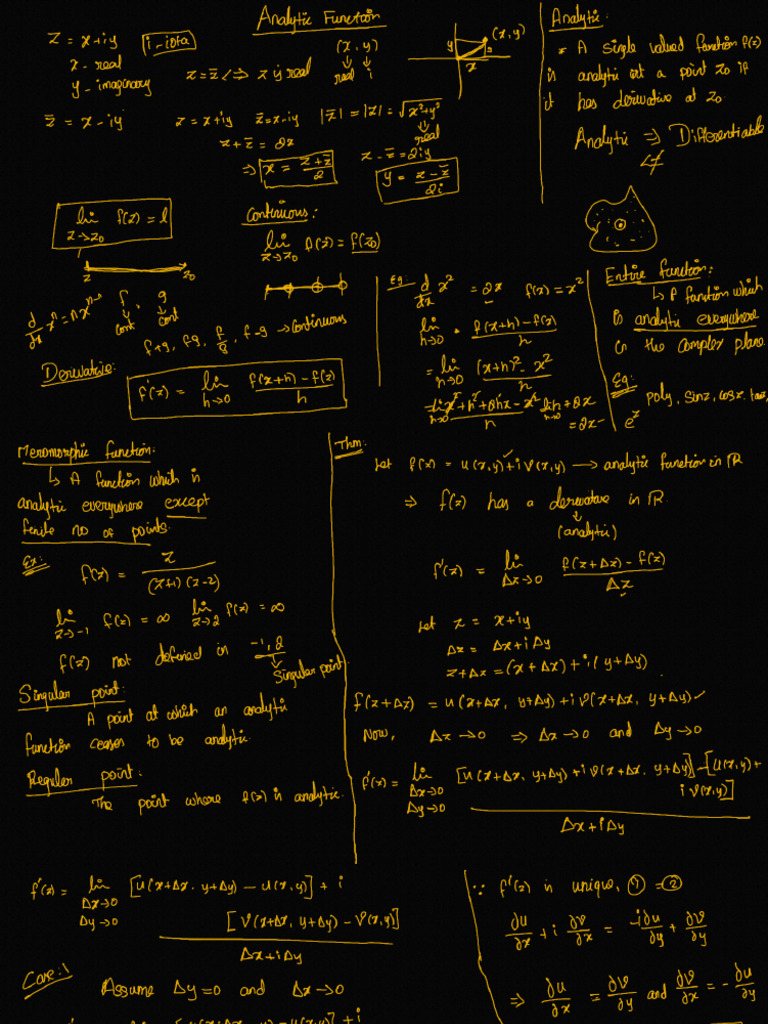 Analytic Function
z = x+iy
i - iota
x - real
y - imaginary
z = z̄ <=> z is real
(x, y)
↓ ↓
real i
z̄ = x - iy
z = x+iy z̄ = x-iy |z̄| = |z| = √x²+y²
↓
real
z + z̄ = 2x
⇒ x = z+z̄/2
z - z̄ = 2iy
y = z-z̄/2i
(x, y)
y
x
Analytic:
* A single valued function f(z)
is analytic at a point z₀ if
it has derivative at z₀
Analytic ⇒ Differentiable
lim z→z₀ f(z) = l
z z₀
Continuous:
lim z→z₀ f(z) = f(z₀)
d/dx xⁿ = n xⁿ⁻¹
f, g
↓ ↓
cont cont
f+g, fg, f/g, f-g → continuous
Derivative:
f'(x) = lim h→0 f(x+h) - f(x)/h
Eg: d/dx x² = 2x f(x) = x²
lim h→0 f(x+h) - f(x)/h
= lim h→0 (x+h)² - x²/h
lim h→0 x²+h²+2hx - x²/h
lim h→0 h+2x
= 2x
Entire function:
↳ A function which
is analytic everywhere
in the complex plane.
Eg:
poly, sinz, cosx,
eᶻ
Meromorphic function:
↳ A function which is
analytic everywhere except
finite no of points.
Ex:
f(z) = z/(z+1)(z-2)
lim z→-1 f(z) = ∞ lim z→2 f(z) = ∞
f(z) not defined in -1, 2
↓
Singular point.
Singular point:
A point at which an analytic
function ceases to be analytic.
Regular point:
The point where f(z) is analytic.
Thm:
Let f(z) = u(x,y) + i v(x,y) → analytic function in R
⇒ f(z) has a derivative in R.
↓
(analytic)
f'(z) = lim Δz→0 f(z+Δz) - f(z)/Δz
Let z = x+iy
Δz = Δx+iΔy
z+Δz = (x+Δx)+i(y+Δy)
f(z+Δz) = u(x+Δx, y+Δy)+i v(x+Δx, y+Δy)
Now, Δz→0 ⇒ Δx→0 and Δy→0
f'(z) = lim Δx→0 Δy→0 [u(x+Δx, y+Δy)+i v(x+Δx, y+Δy)] - [u(x,y)+
i v(x,y)]
Δx+iΔy
f'(z) = lim Δx→0 Δy→0 [u(x+Δx, y+Δy) - u(x,y)] + i
[v(x+Δx, y+Δy) - v(x,y)]
Δx+iΔy
Case:1
Assume Δy=0 and Δx→0
∵ f'(z) is unique, ① = ②
∂u/∂x + i ∂v/∂x = -i∂u/∂y + ∂v/∂y
⇒ ∂u/∂x = ∂v/∂y and ∂v/∂x = -∂u/∂y